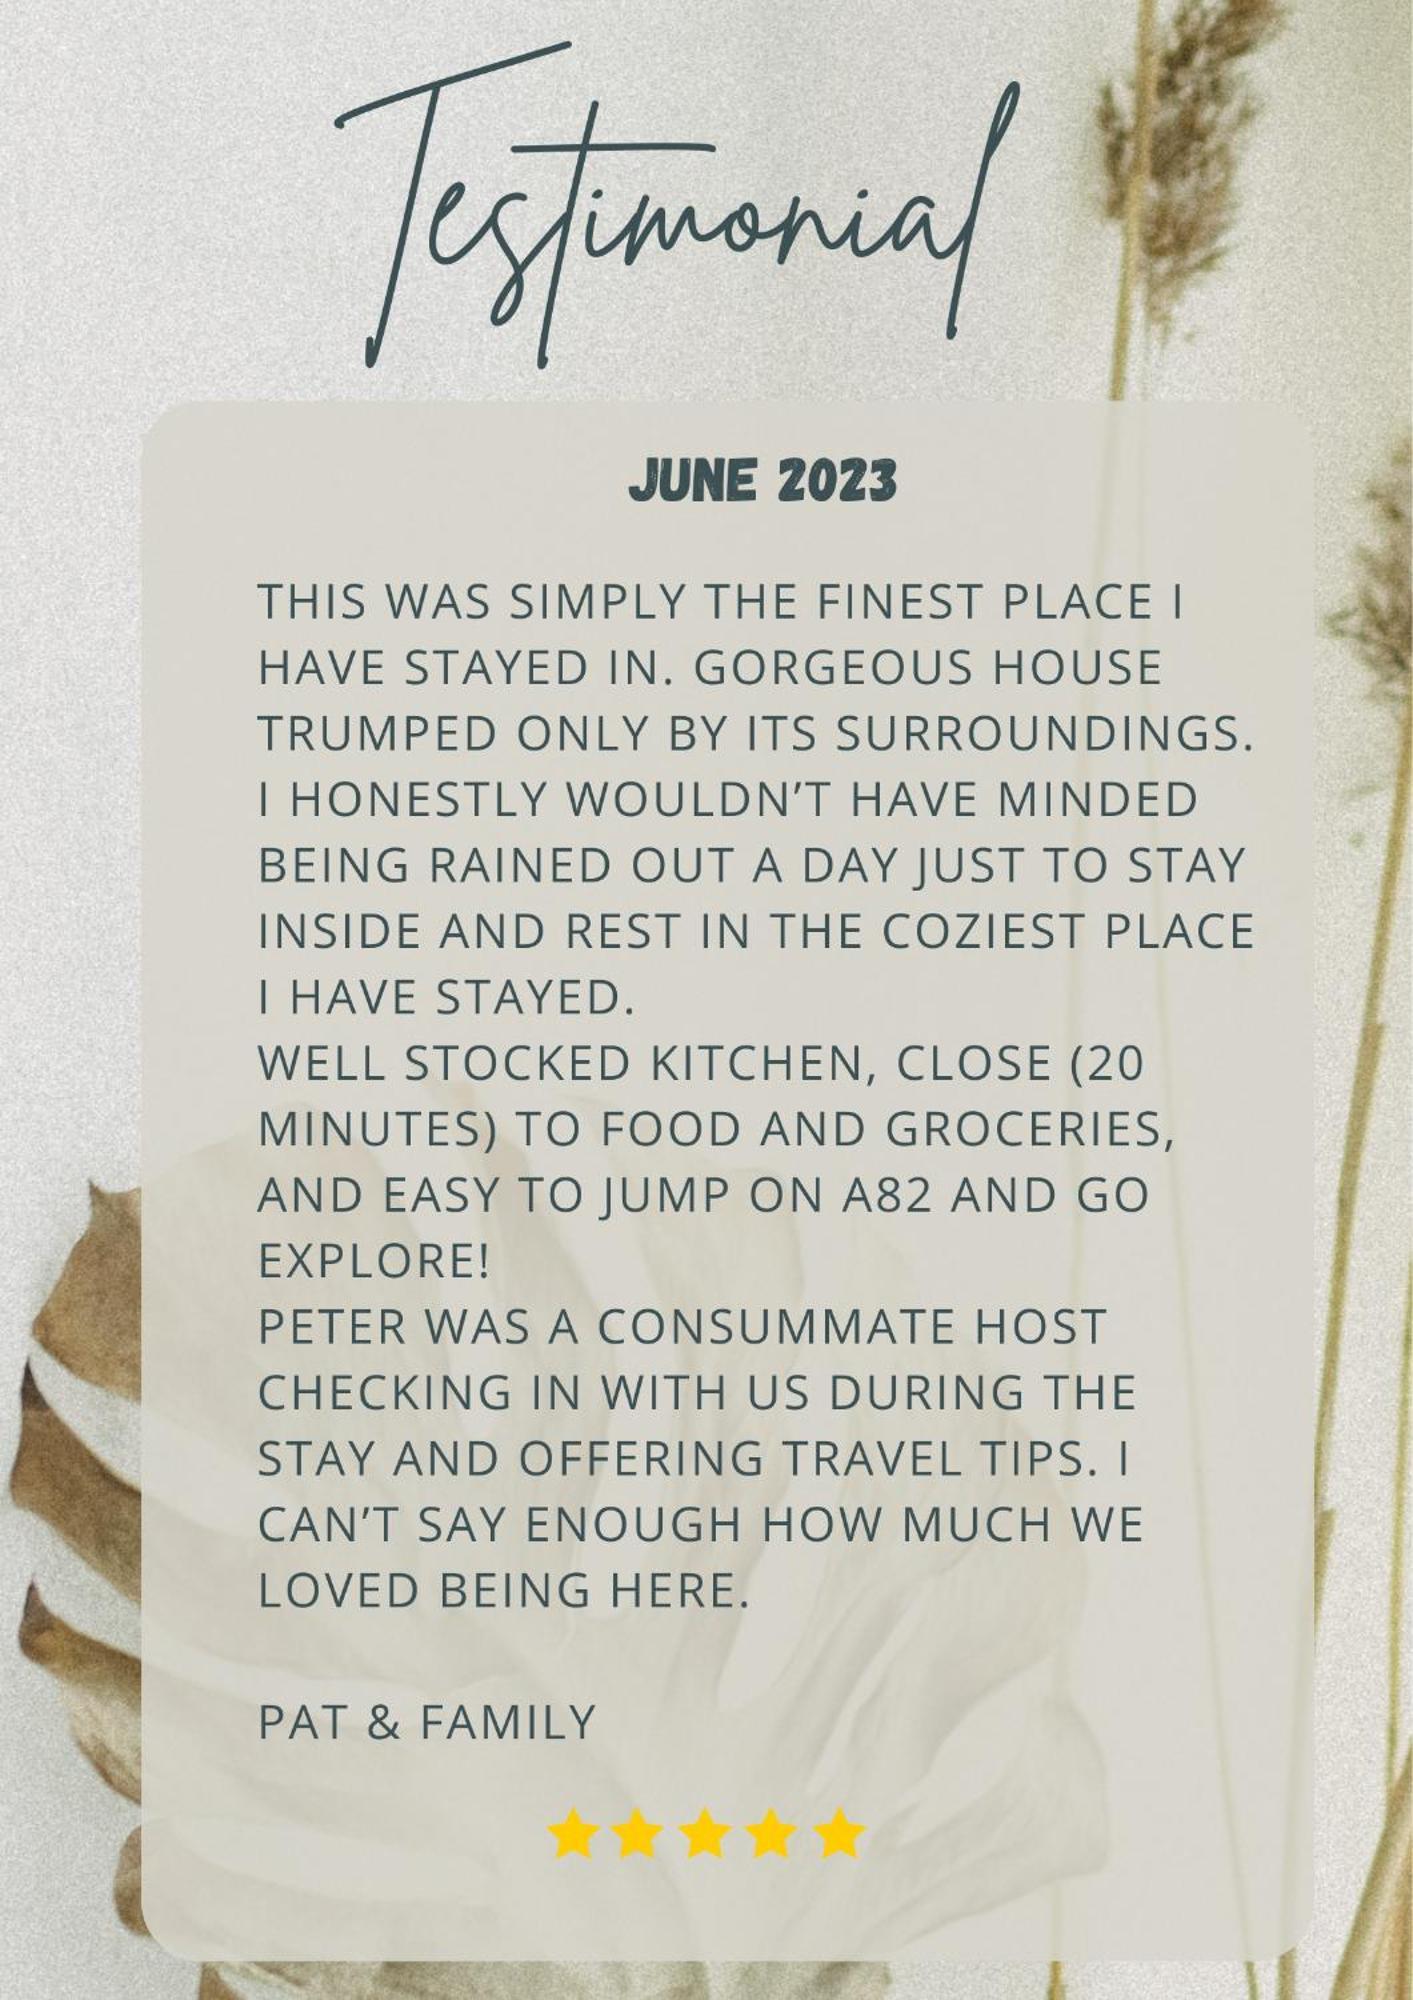 Testimonial
JUNE 2023
THIS WAS SIMPLY THE FINEST PLACE I
HAVE STAYED IN. GORGEOUS HOUSE
TRUMPED ONLY BY ITS SURROUNDINGS.
I HONESTLY WOULDN’T HAVE MINDED
BEING RAINED OUT A DAY JUST TO STAY
INSIDE AND REST IN THE COZIEST PLACE
I HAVE STAYED.
WELL STOCKED KITCHEN, CLOSE (20
MINUTES) TO FOOD AND GROCERIES,
AND EASY TO JUMP ON A82 AND GO
EXPLORE!
PETER WAS A CONSUMMATE HOST
CHECKING IN WITH US DURING THE
STAY AND OFFERING TRAVEL TIPS. I
CAN’T SAY ENOUGH HOW MUCH WE
LOVED BEING HERE.
PAT & FAMILY